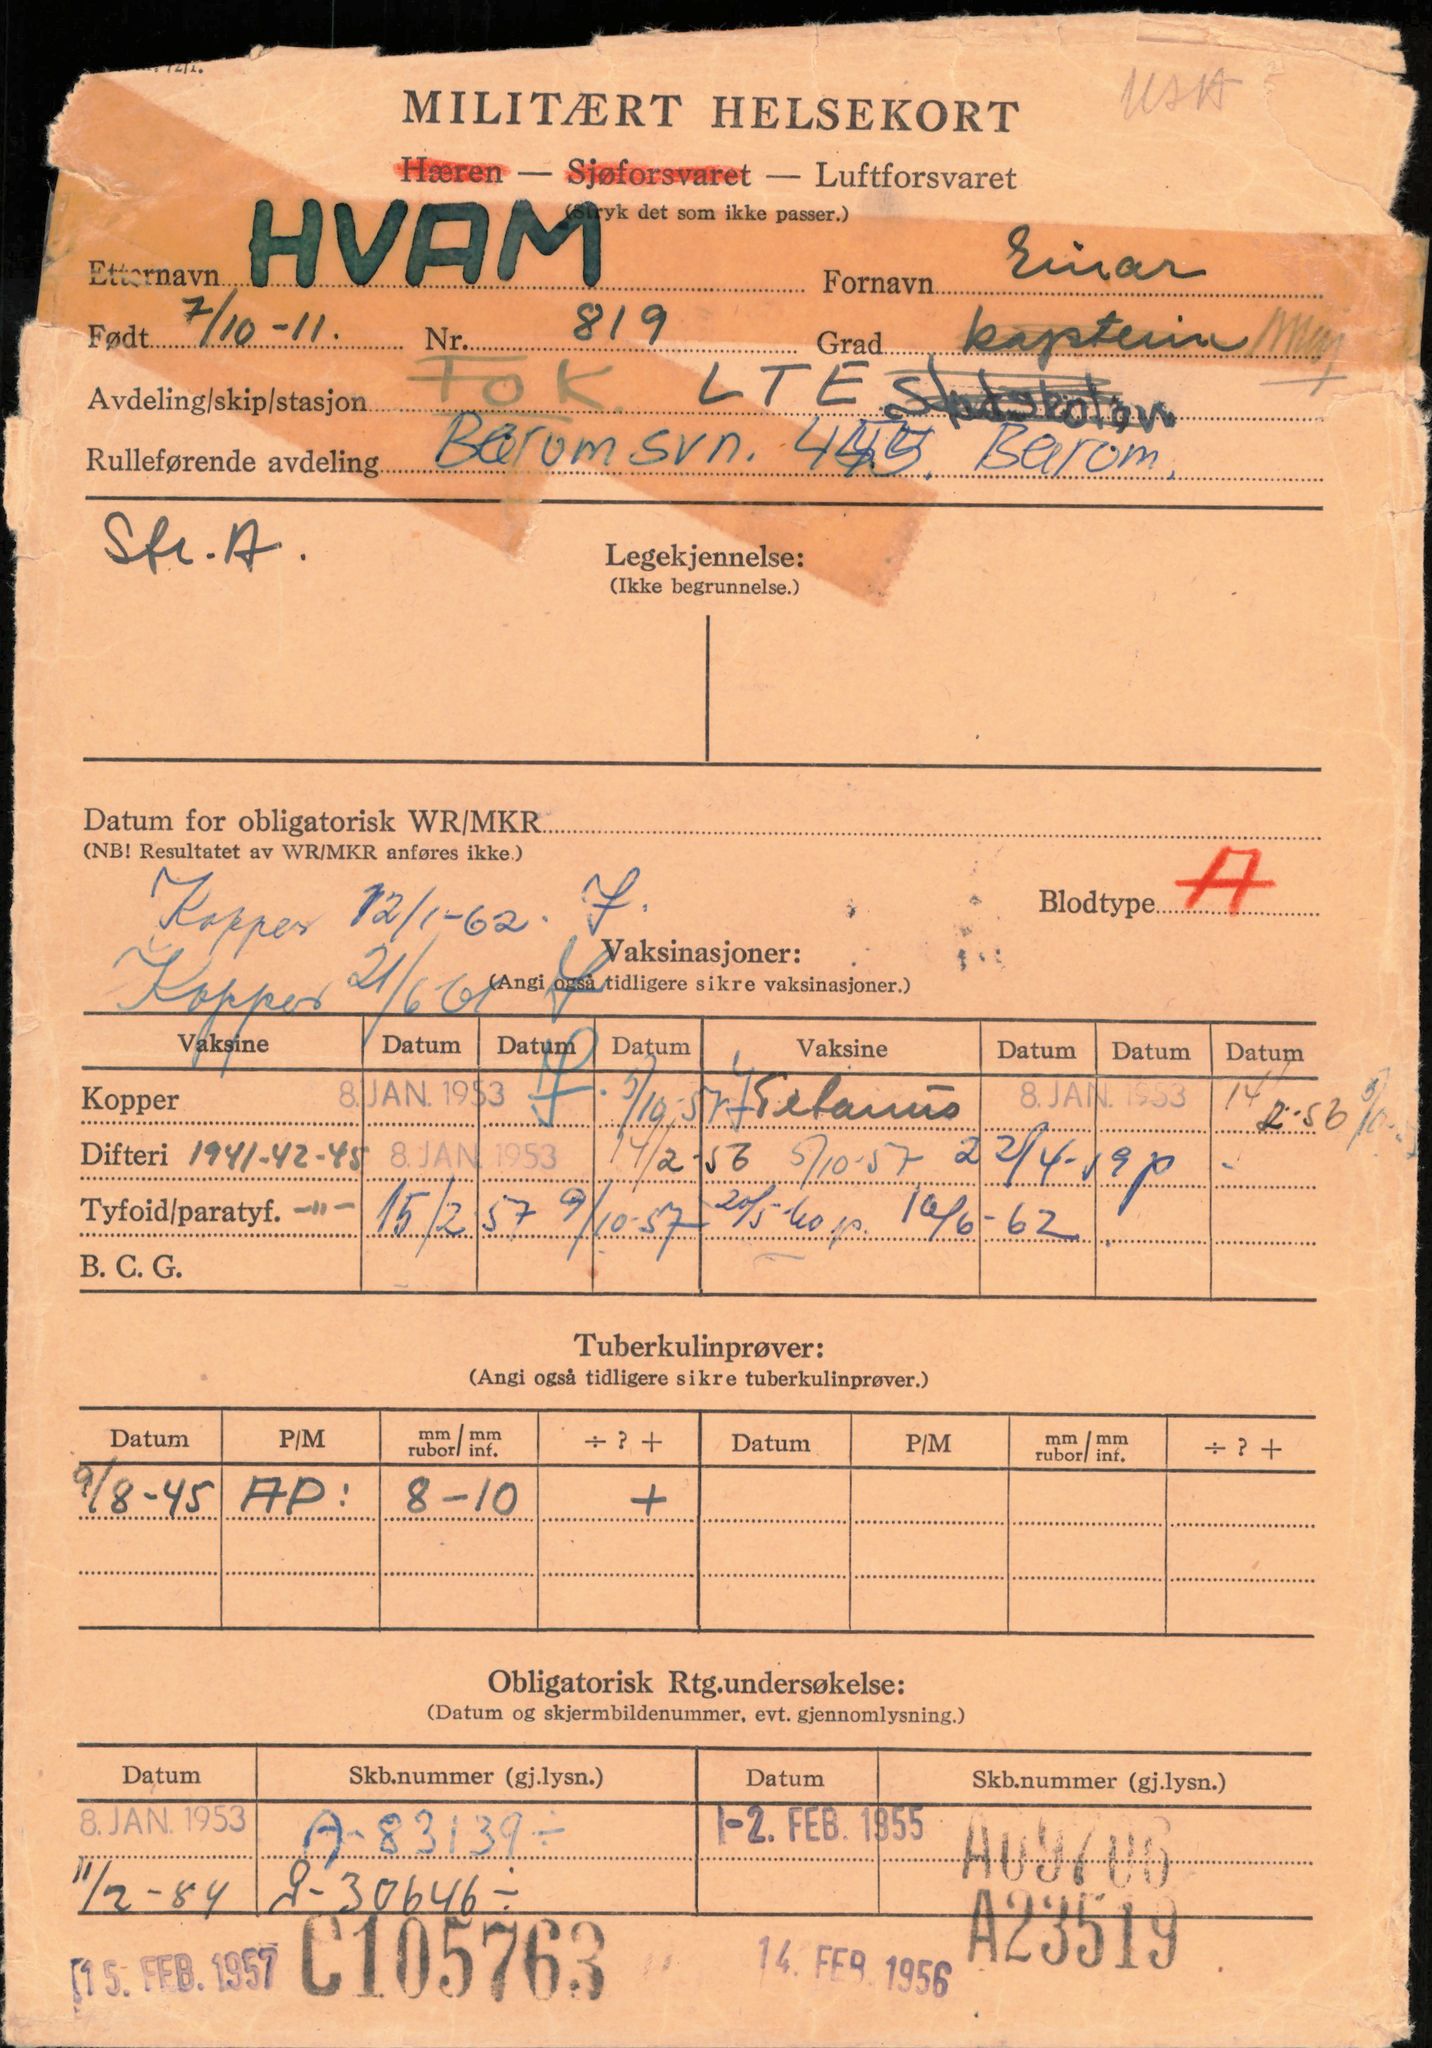 USA
MILITÆRT HELSEKORT
Hæren — Sjøforsvaret — Luftforsvaret
(Stryk det som ikke passer.)
Etternavn HVAM Fornavn Einar
Født 7/10-11. Nr. 819 Grad kaptein Maj
Avdeling/skip/stasjon FOK. LTE
Rulleførende avdeling Bærum svn. Bærum.
Str. A.
Legekjennelse:
(Ikke begrunnelse.)
Datum for obligatorisk WR/MKR
(NB! Resultatet av WR/MKR anføres ikke.)
Kopper 12/1-62. F.
Blodtype A
Vaksinasjoner:
Kopper 21/6 61
(Angi også tidligere sikre vaksinasjoner.)
Vaksine Datum Datum Datum Vaksine Datum Datum Datum
Kopper 8. JAN. 1953 5/10-57 Tetanus 8. JAN. 1953 14/2-56
Difteri 1941-42-45 8. JAN. 1953 14/2-56 5/10-57 22/4-59 p
Tyfoid/paratyf. -"- 15/2 57 9/10-57 20/5-60 p. 16/6-62
B. C. G.
Tuberkulinprøver:
(Angi også tidligere sikre tuberkulinprøver.)
Datum P/M mm rubor/mm inf. ÷ ? + Datum P/M mm rubor/mm inf. ÷ ? +
9/8-45 AP: 8-10 +
Obligatorisk Rtg.undersøkelse:
(Datum og skjermbildenummer, evt. gjennomlysning.)
Datum Skb.nummer (gj.lysn.) Datum Skb.nummer (gj.lysn.)
8. JAN. 1953 A-83139 ÷ 1-2. FEB. 1955 A09706
11/2-54 30646 ÷ A23519
15. FEB. 1957 C105763 14. FEB. 1956